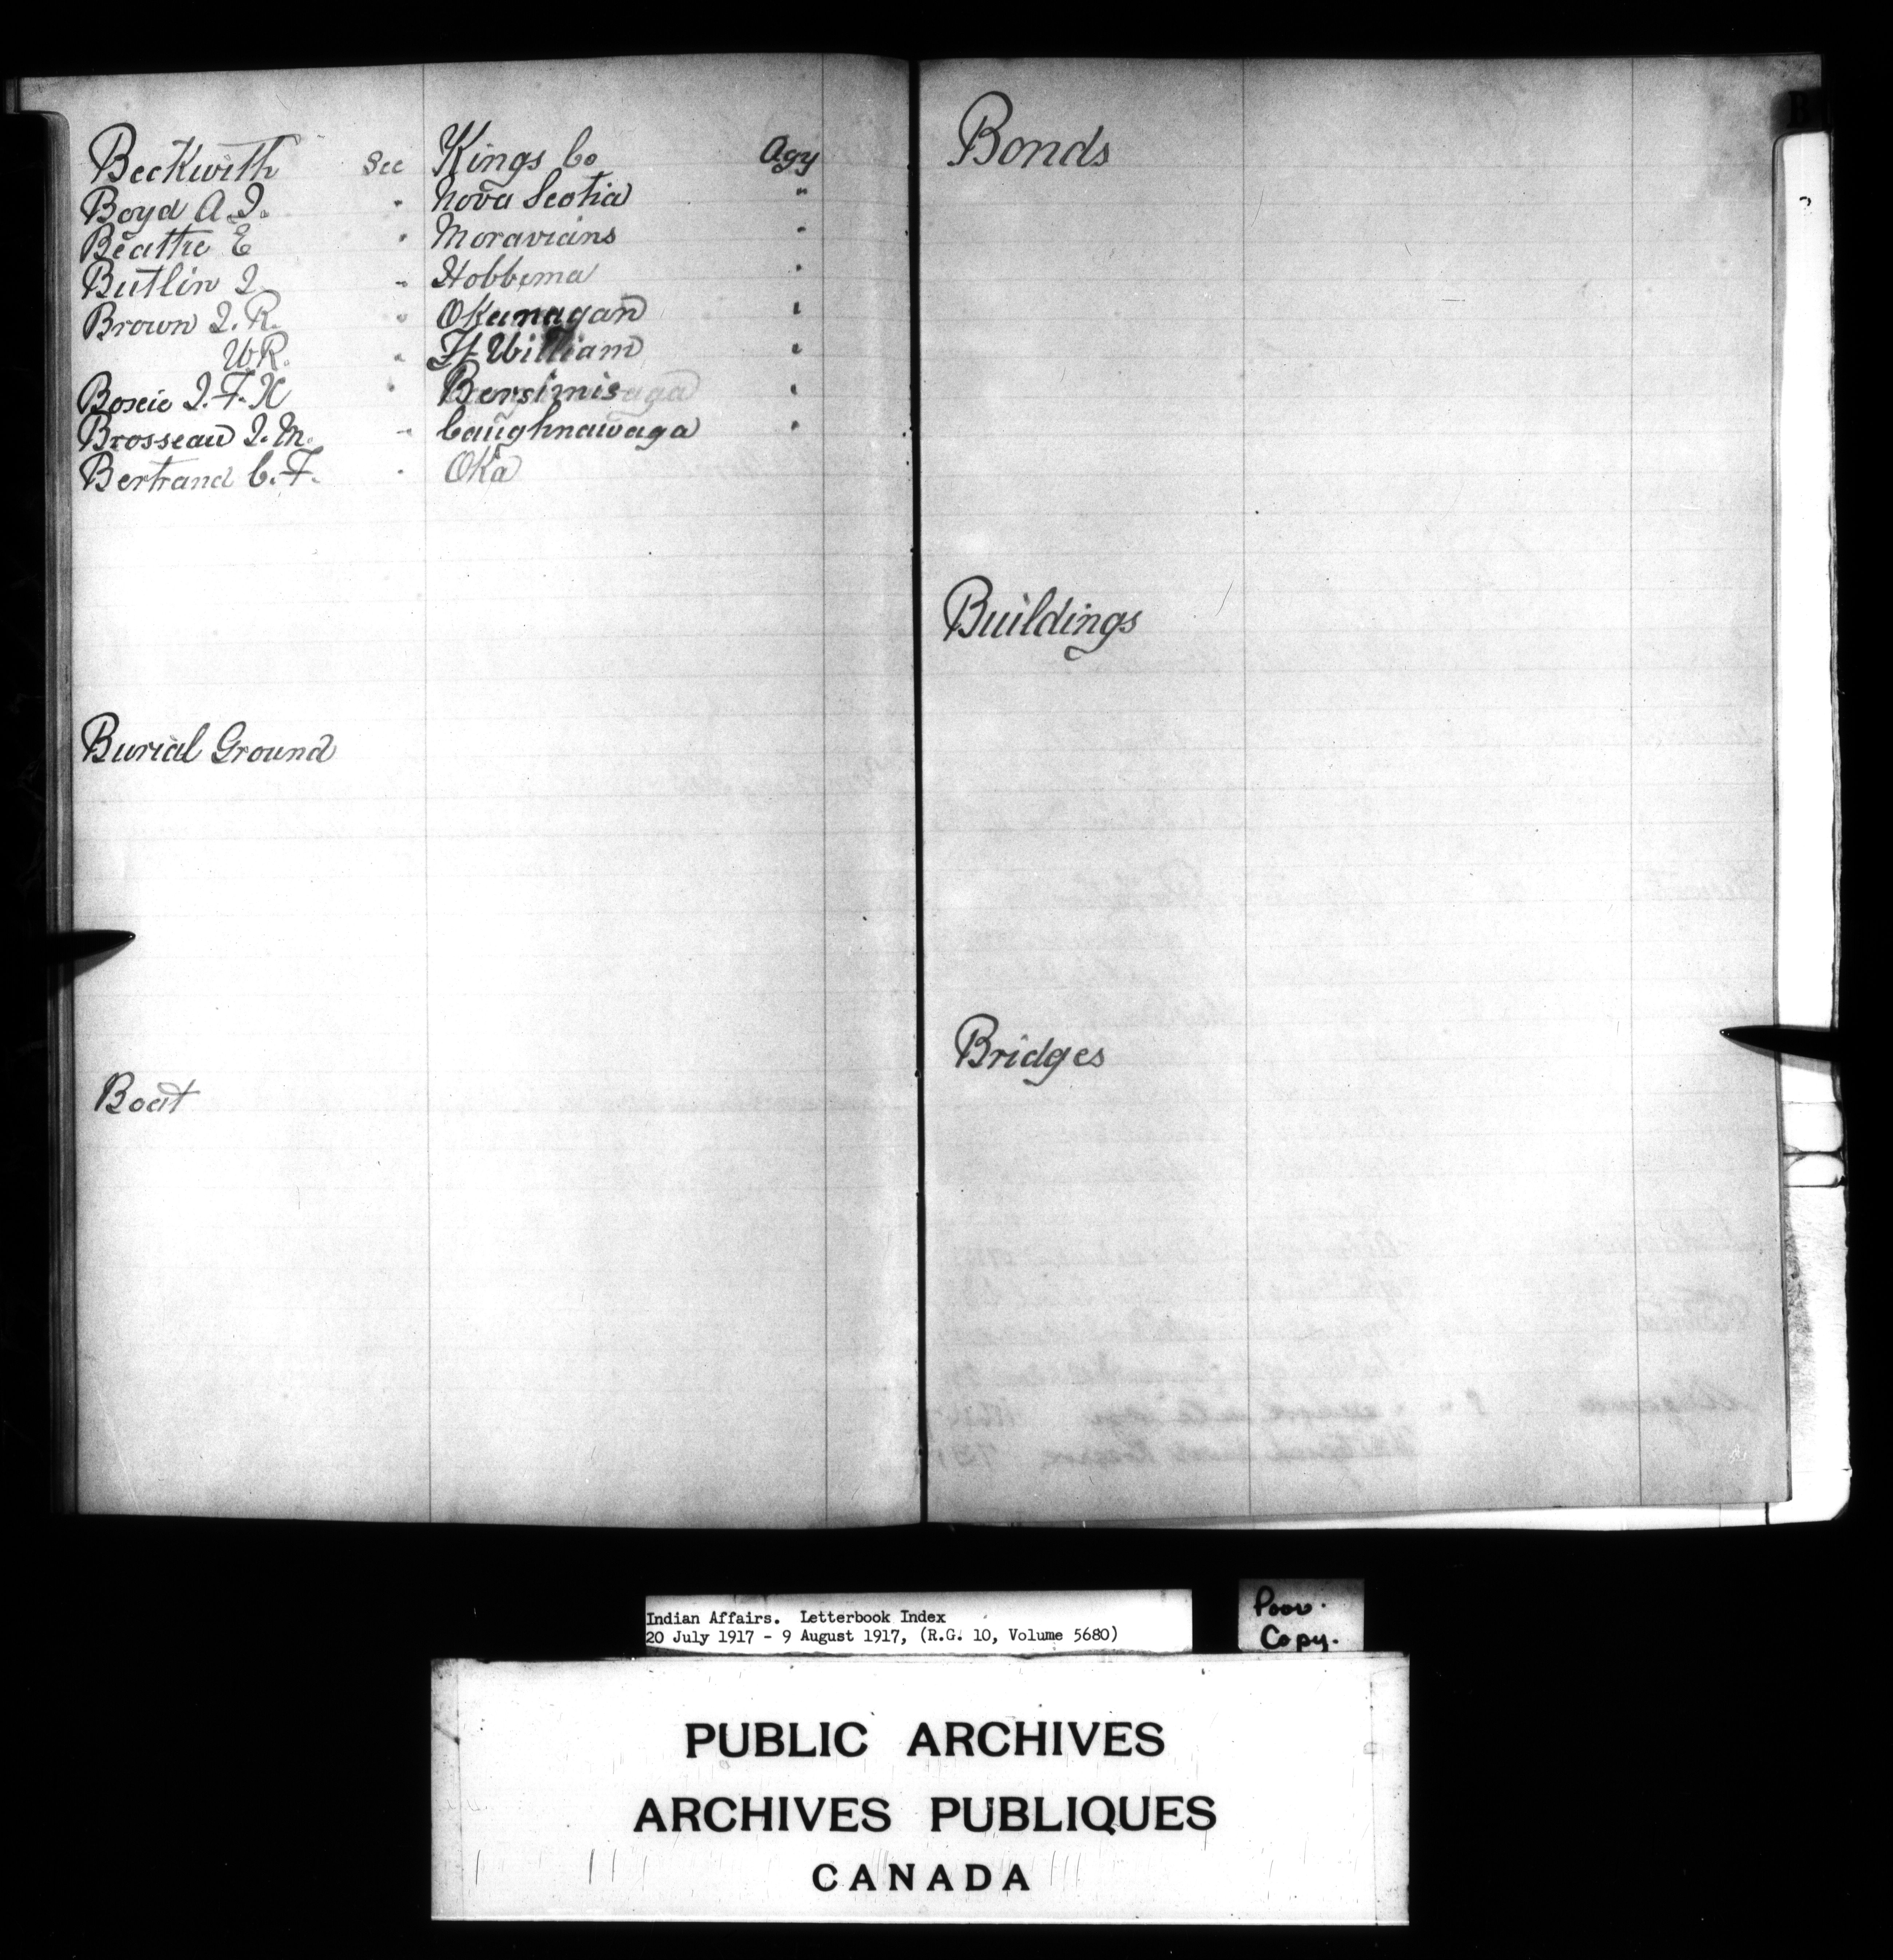 Beckwith See Kings Co Agy
Boyd A. J. " Nova Scotia "
Beattie E " Moravians "
Butlin J. " Hobbema "
Brown J. R. " Okanagan "
W. R. " Ft William "
Bossie J. F. X " Bersimis "
Brosseau J. M. " Caughnawaga "
Bertrand C. F. " Oka
Burial Ground
Boat
Bonds
Buildings
Bridges
B
Indian Affairs. Letterbook Index
20 July 1917 - 9 August 1917, (R.G. 10, Volume 5680)
Poor
Copy.
PUBLIC ARCHIVES
ARCHIVES PUBLIQUES
CANADA